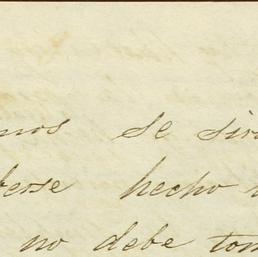 mos se sir
berse hecho
no debe tom